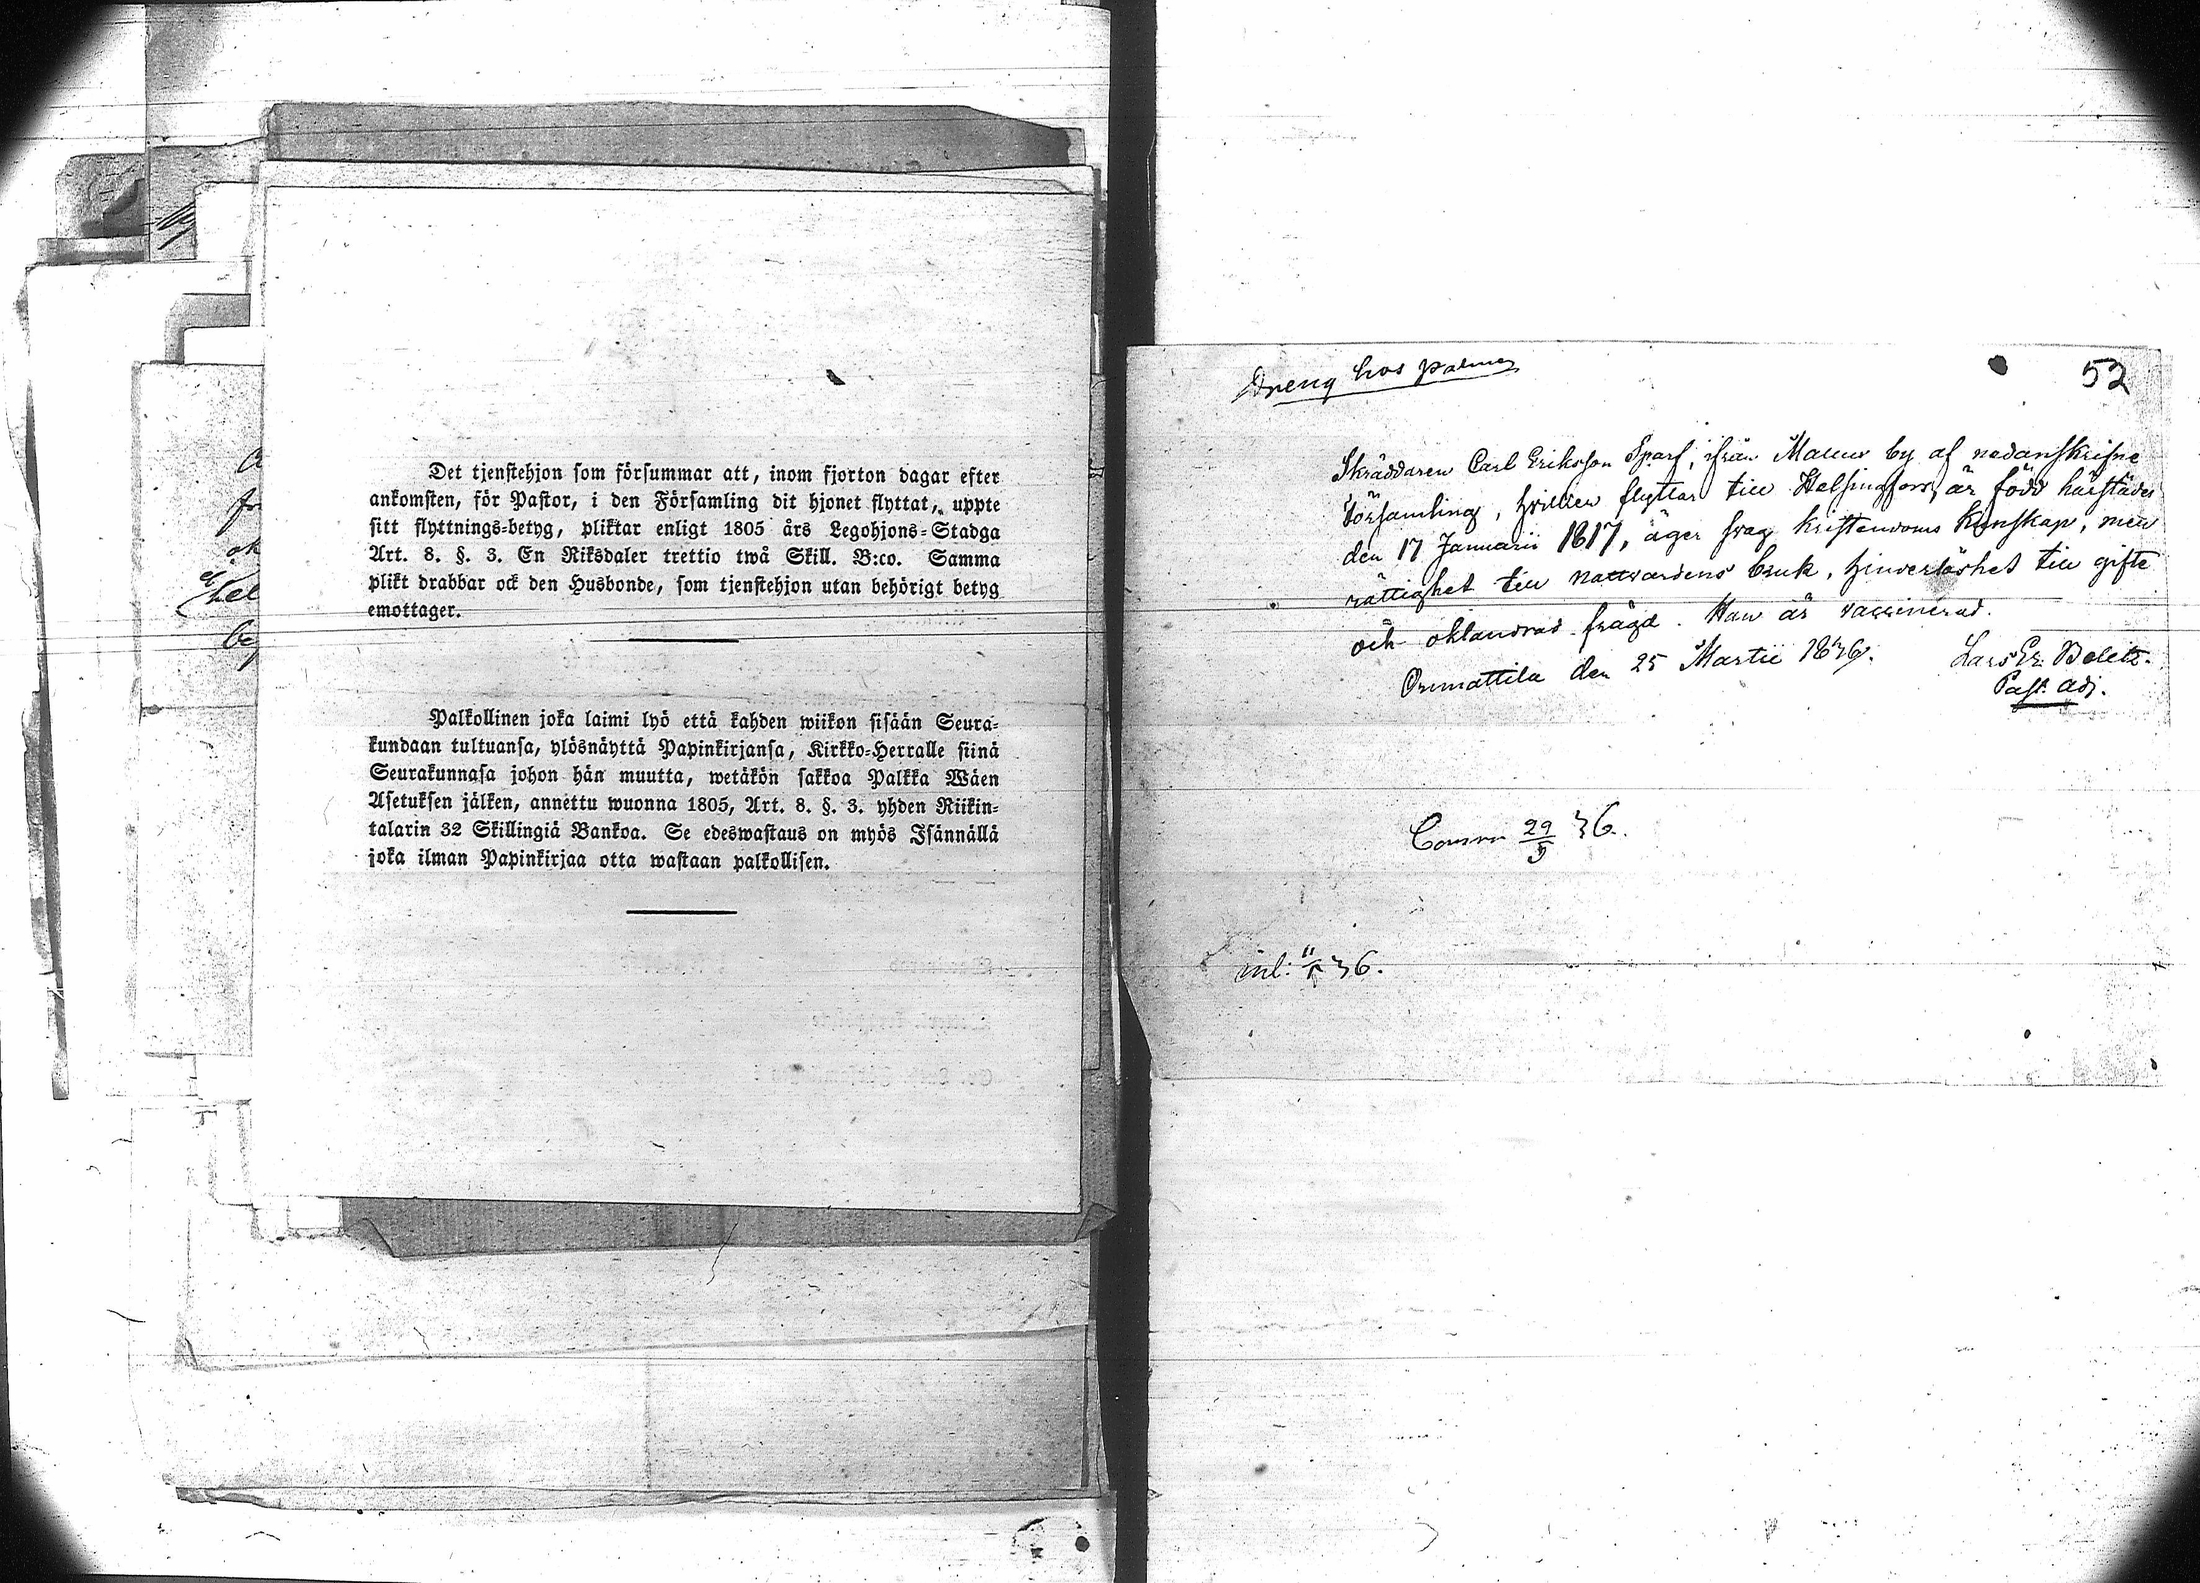 Det tjenstehjon som försummar att, inom fjorton dagar efter
ankomsten, för Pastor, i den Församling dit hjonet flyttat, uppte
sitt flyttnings-betyg, pliktar enligt 1805 års Legohjons-Stadga
Art. 8. §. 3. En Riksdaler trettio twå Skill. B:co. Samma
plikt drabbar ock den Husbonde, som tjenstehjon utan behörigt betyg
emottager.
Palkollinen joka laimi lyö että kahden wiikon sisään Seura-
kundaan tultuansa, ylösnäyttä Papinkirjansa, Kirkko-Herralle siinä
Seurakunnasa johon hän muutta, wetäkön sakkoa Palkka Wäen
Asetuksen jälken, annettu wuonna 1805, Art. 8. §. 3. yhden Riikin-
talarin 32 Skillingiä Bankoa. Se edeswastaus on myös Isännällä
joka ilman Papinkirjaa otta wastaan palkollisen.
Dreng hos Palmer
52
Skräddaren Carl Eriksson Sparf, ifrån by af nedanskrifne
Församling, hvilken flyttar till Helsingfors, är född härstädes
den 17 Januarii 1817, äger svag kristendoms kunskap, men
rättighet till nattvardens bruk, hinderlöshet till gifte
och oklandrad frägd. Han är vaccinerad.
Orimattila den 25 Martii 1836.
Lars Er.
Past. adj.
Comm 29/5 36.
inl: 36.